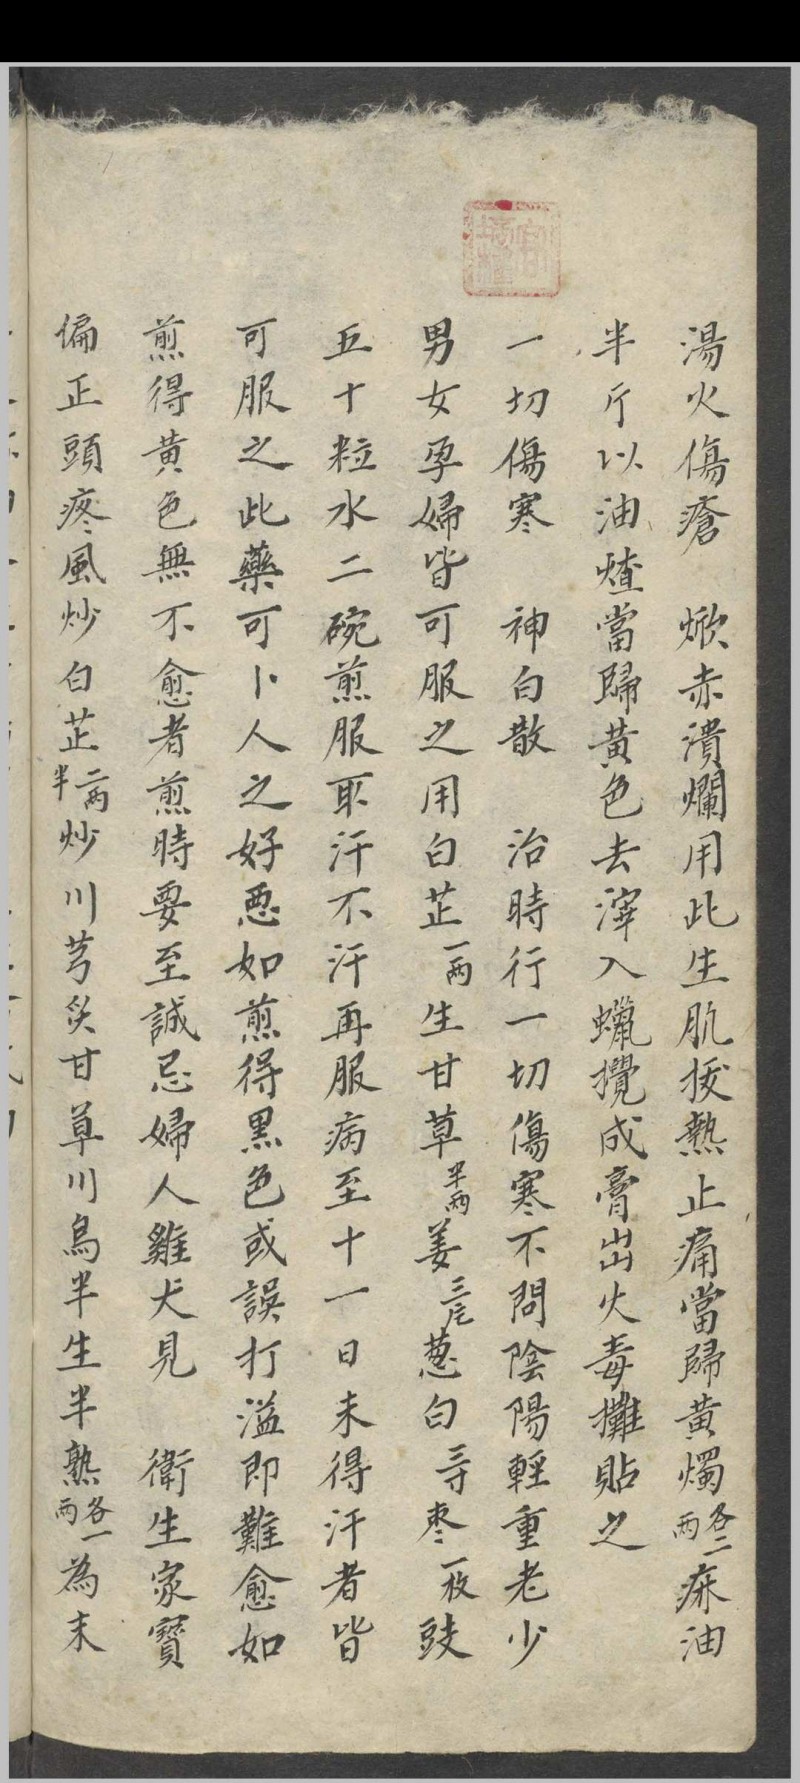 湯火傷瘡　焮赤潰爛用此生肌拔熱止痛當歸黃燭各二兩麻油
半斤以油煠當歸黃色去滓入蠟攪成膏出火毒攤貼之
一切傷寒　神白散　治時行一切傷寒不問陰陽輕重老少
男女孕婦皆可服之用白芷一兩生甘草半兩姜三片葱白三寸枣一枚豉
五十粒水二碗煎服取汗不汗再服病至十一日未得汗者皆
可服之此藥可卜人之好惡如煎得黑色或誤打溢即難愈如
煎得黃色無不愈者煎時要至誠忌婦人雞犬見　衛生家寶
偏正頭疼風炒白芷二兩半炒川芎炙甘草川烏半生半熟各一兩為末